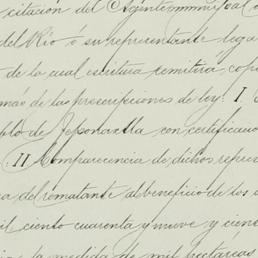 citación del Agente municipal
del Río ó su representante lega
de la cual escritura remitirá, copi
más de las prescripciones de ley. I.
blo de Jesponaxtla con certificació
. II Comparecencia de dichos repres
a del rematante al beneficio de los
il ciento cuarenta y nueve, y cien
la medida de mil hectareas